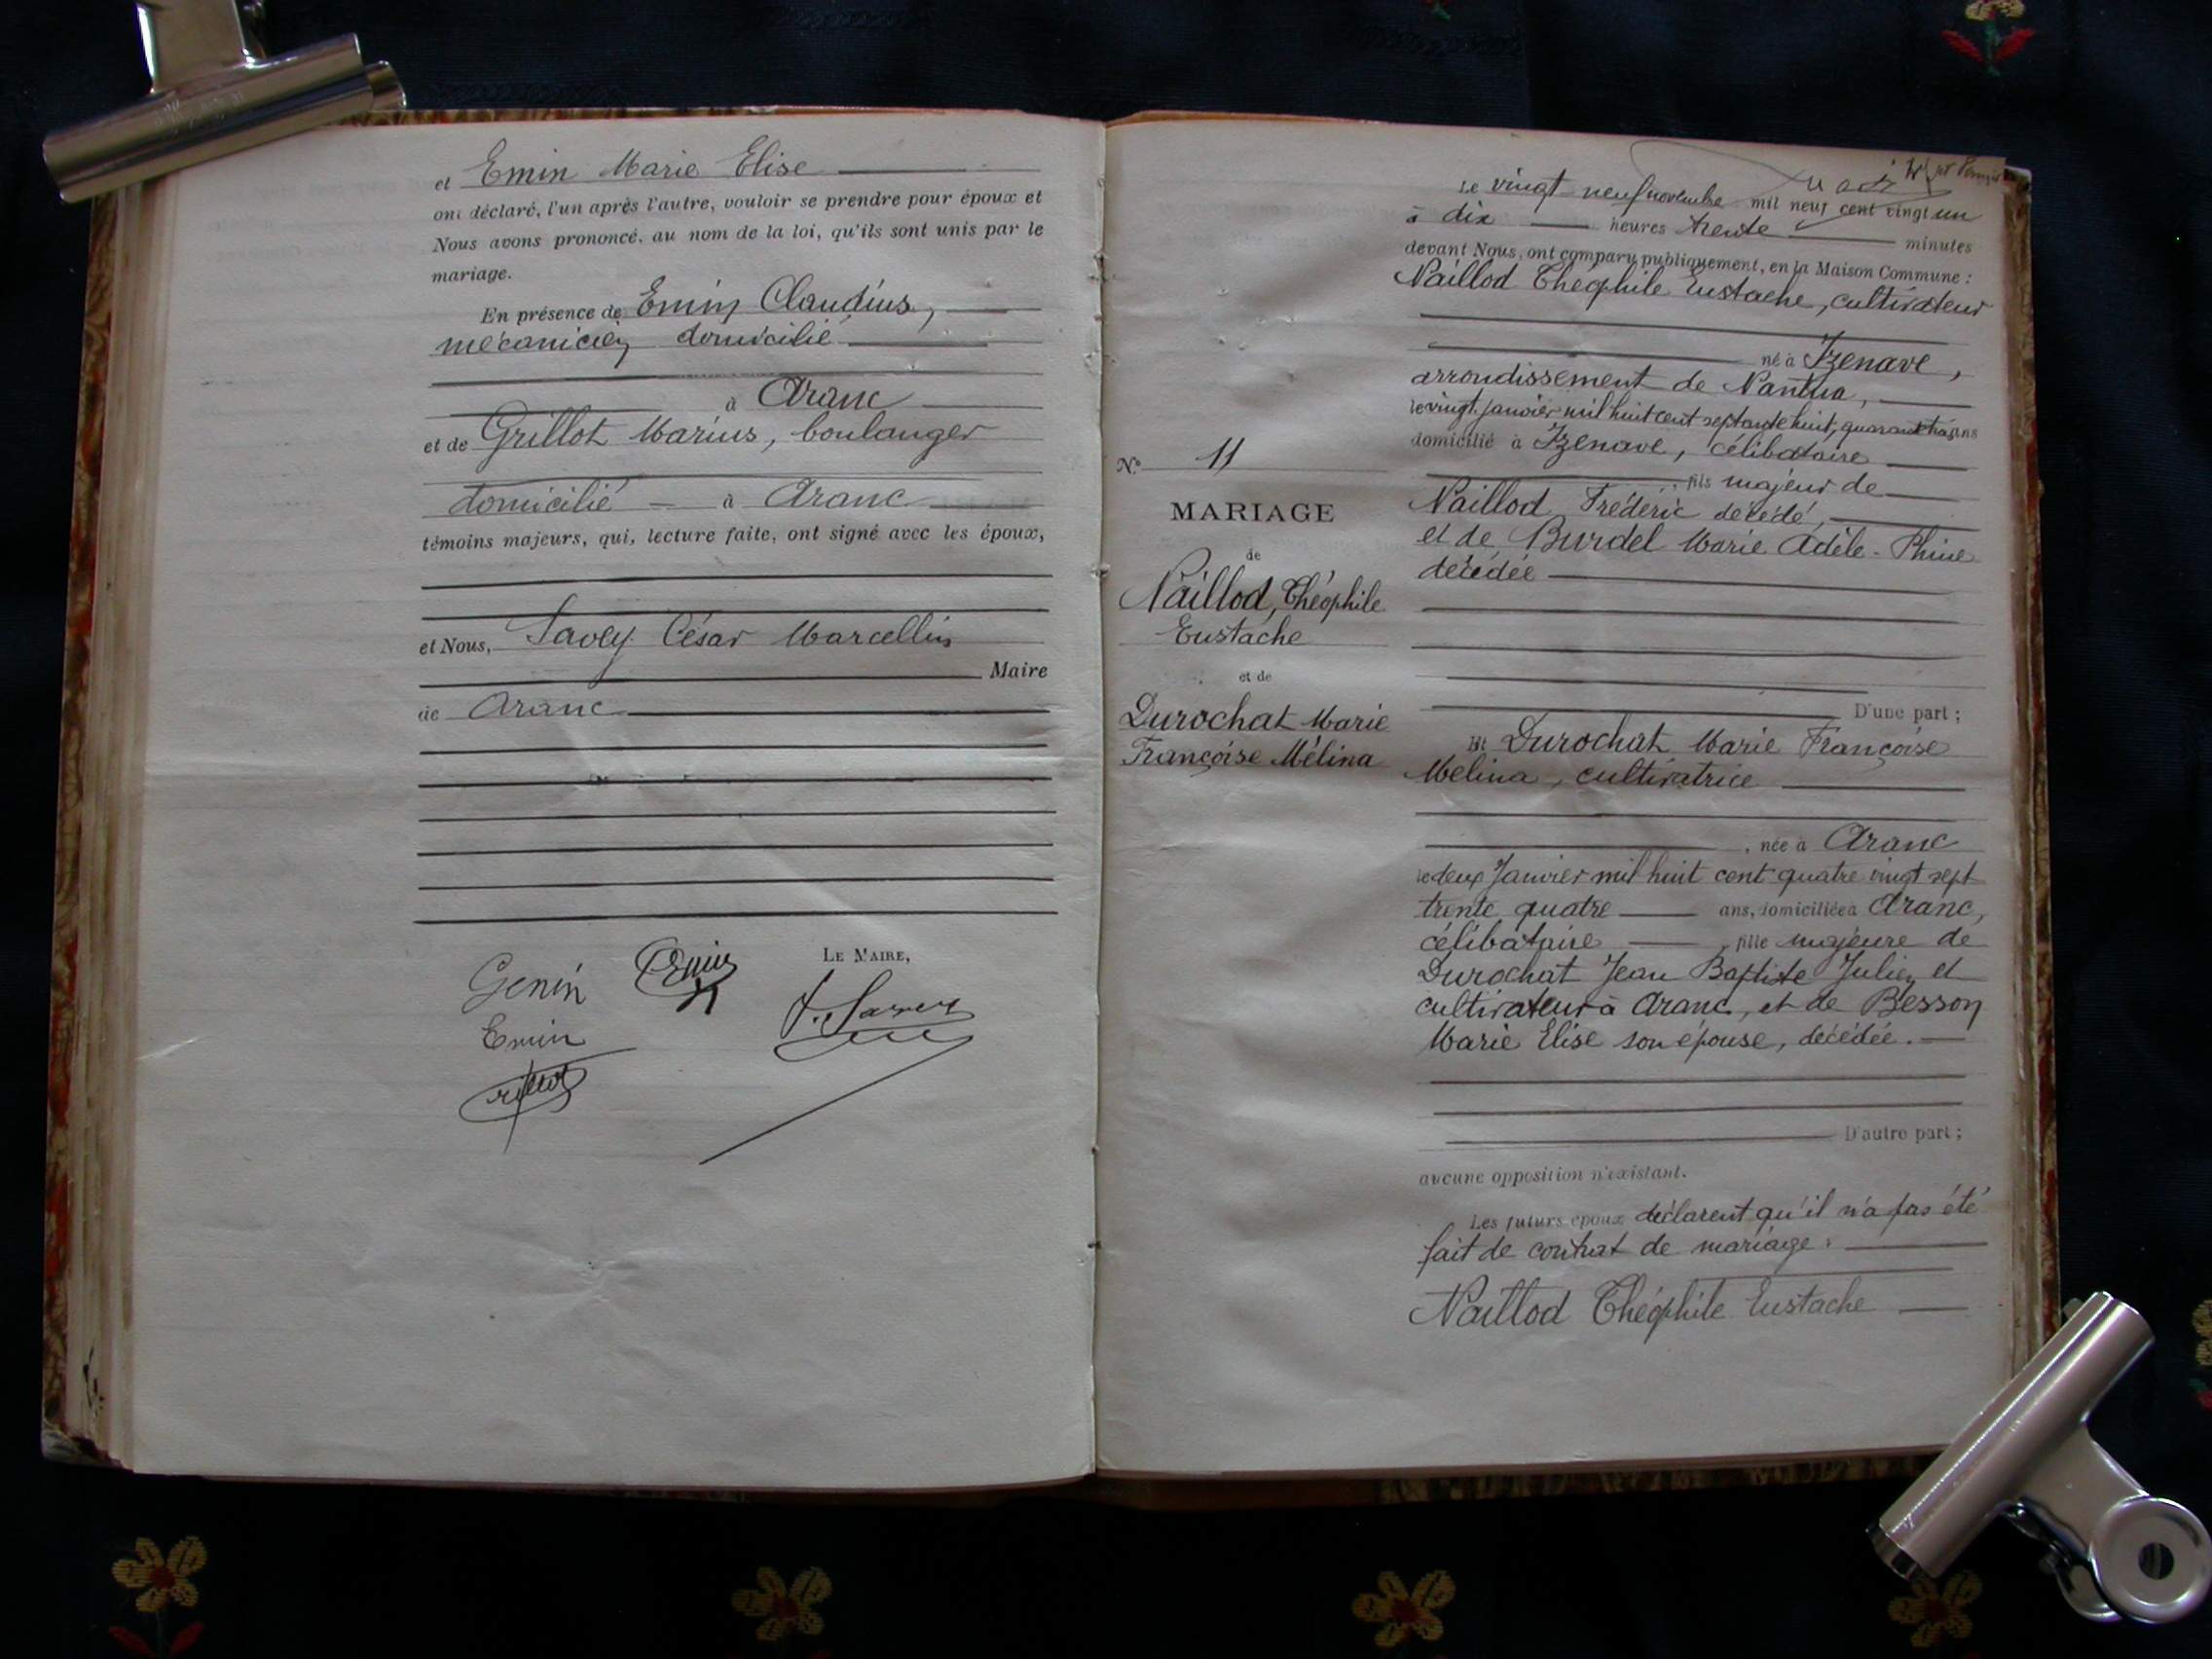 et Emin Marie Elise
ont déclaré, l'un après l'autre, vouloir se prendre pour époux et
Nous avons prononcé, au nom de la loi, qu'ils sont unis par le
mariage.
En présence de Emin Claudius,
mécanicien domicilié
à Aranc
et de Grillot Marius, boulanger
domicilié à Aranc
témoins majeurs, qui, lecture faite, ont signé avec les époux,
et Nous, Savey César Marcellin
Maire
de Aranc
LE MAIRE,
Genin
Emin
Nº 11
MARIAGE
de
Naillod, Théophile
Eustache
et de
Durochat Marie
Françoise Mélina
Le vingt neuf novembre mil neuf cent vingt un
à dix heures trente minutes
devant Nous, ont comparu publiquement, en la Maison Commune :
Naillod Théophile Eustache, cultivateur
né à Izenave,
arrondissement de Nantua,
le vingt janvier mil huit cent septante huit, quarante trois ans
domicilié à Izenave, célibataire
, fils majeur de
Naillod Frédéric décédé,
et de Burdel Marie Adèle-Phine
décédée
D'une part ;
Et Durochat Marie Françoise
Melina, cultivatrice
, née à Aranc
le deux Janvier mil huit cent quatre vingt sept
trente quatre ans, domiciliée à Aranc,
célibataire , fille majeure de
Durochat Jean Baptiste Julien et
cultivateur à Aranc, et de Besson
Marie Elise son épouse, décédée.
D'autre part ;
aucune opposition n'existant.
Les futurs époux déclarent qu'il n'a pas été
fait de contrat de mariage.
Naillod Théophile Eustache